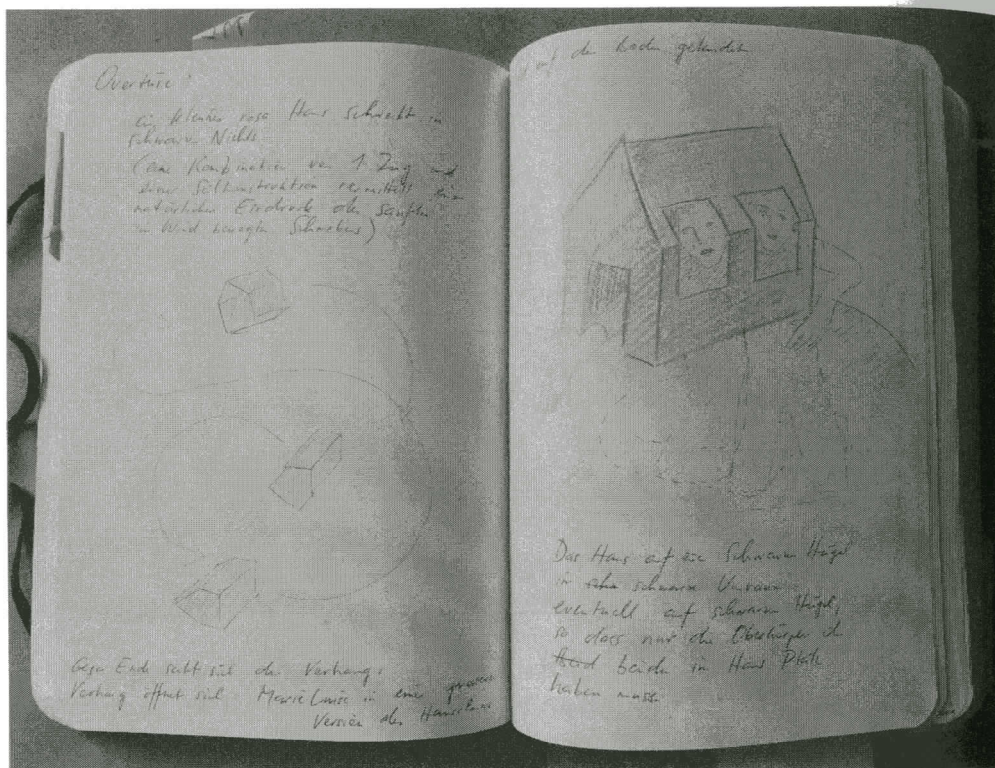 Overtüre!
ein kleines rosa Haus schwebt in
schwarzem Nichts
(eine Kombination von 1 Zug und
einer Seilkonstruktion vermittelt den
natürlichen Eindruck des sanften
im Wind bewegten Schwebens)
Gegen Ende senkt sich der Vorhang.
Vorhang öffnet sich Marie Luise in eine
Version des Hauses
auf den Boden
Das Haus auf ein schwarzen Hügel
in schwarzem
eventuell auf schwarzem Hügel,
so dass nur die Oberkörper d
beide in Haus Platz
haben muss